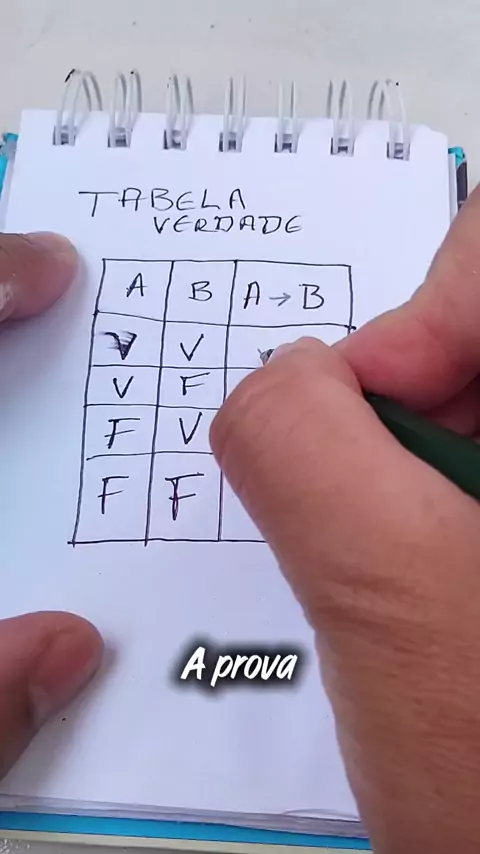 TABELA
VERDADE
A B A → B
V V
V F
F V
F F
A prova